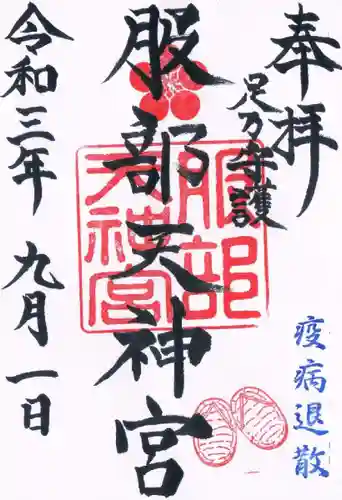 奉拝
足乃守護
服部天神宮
服部
天神宮
令和三年 九月一日
疫病退散